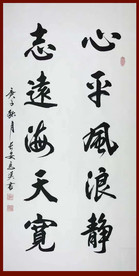 心平風浪静
志遠海天寬
庚子秋月